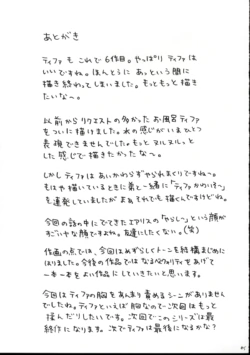 あとがき
ティファも これで6作目。やっぱり ティファは
いいですね。ほんとうに あっという間に
描き終わってしまいました。もっともっと描き
たいな〜。
以前からリクエストの多かったお風呂ティファ
をついに描けました。水の感じがいまひとつ
表現できませんでした。もっとヌルヌルっと
した感じで描きたかったな〜。
しかしティファはあいかわらずやられまくりですね〜。
もはや描いているときに
も連発していましたが まぁそれでも描くんですけどね。
今回の話の中にでてきたエアリスの「やらし〜」という顔が
すごくイヤな顔ですよね。友達にしたくない。(笑)
作画の点では、今回はあずらしくトーンを結構まじめに
はりました。今後の作品ではなるべくクオリティをあげて
一本一本をよい作品にしていきたいと思います。
今回はティファの胸をあんまり責めるシーンがありません
でしたね。ティファといえば胸なので次回はもっと
揉んだりしたいです。次回でこのシリーズは最
終作になります。次でティファは最後になるかな?